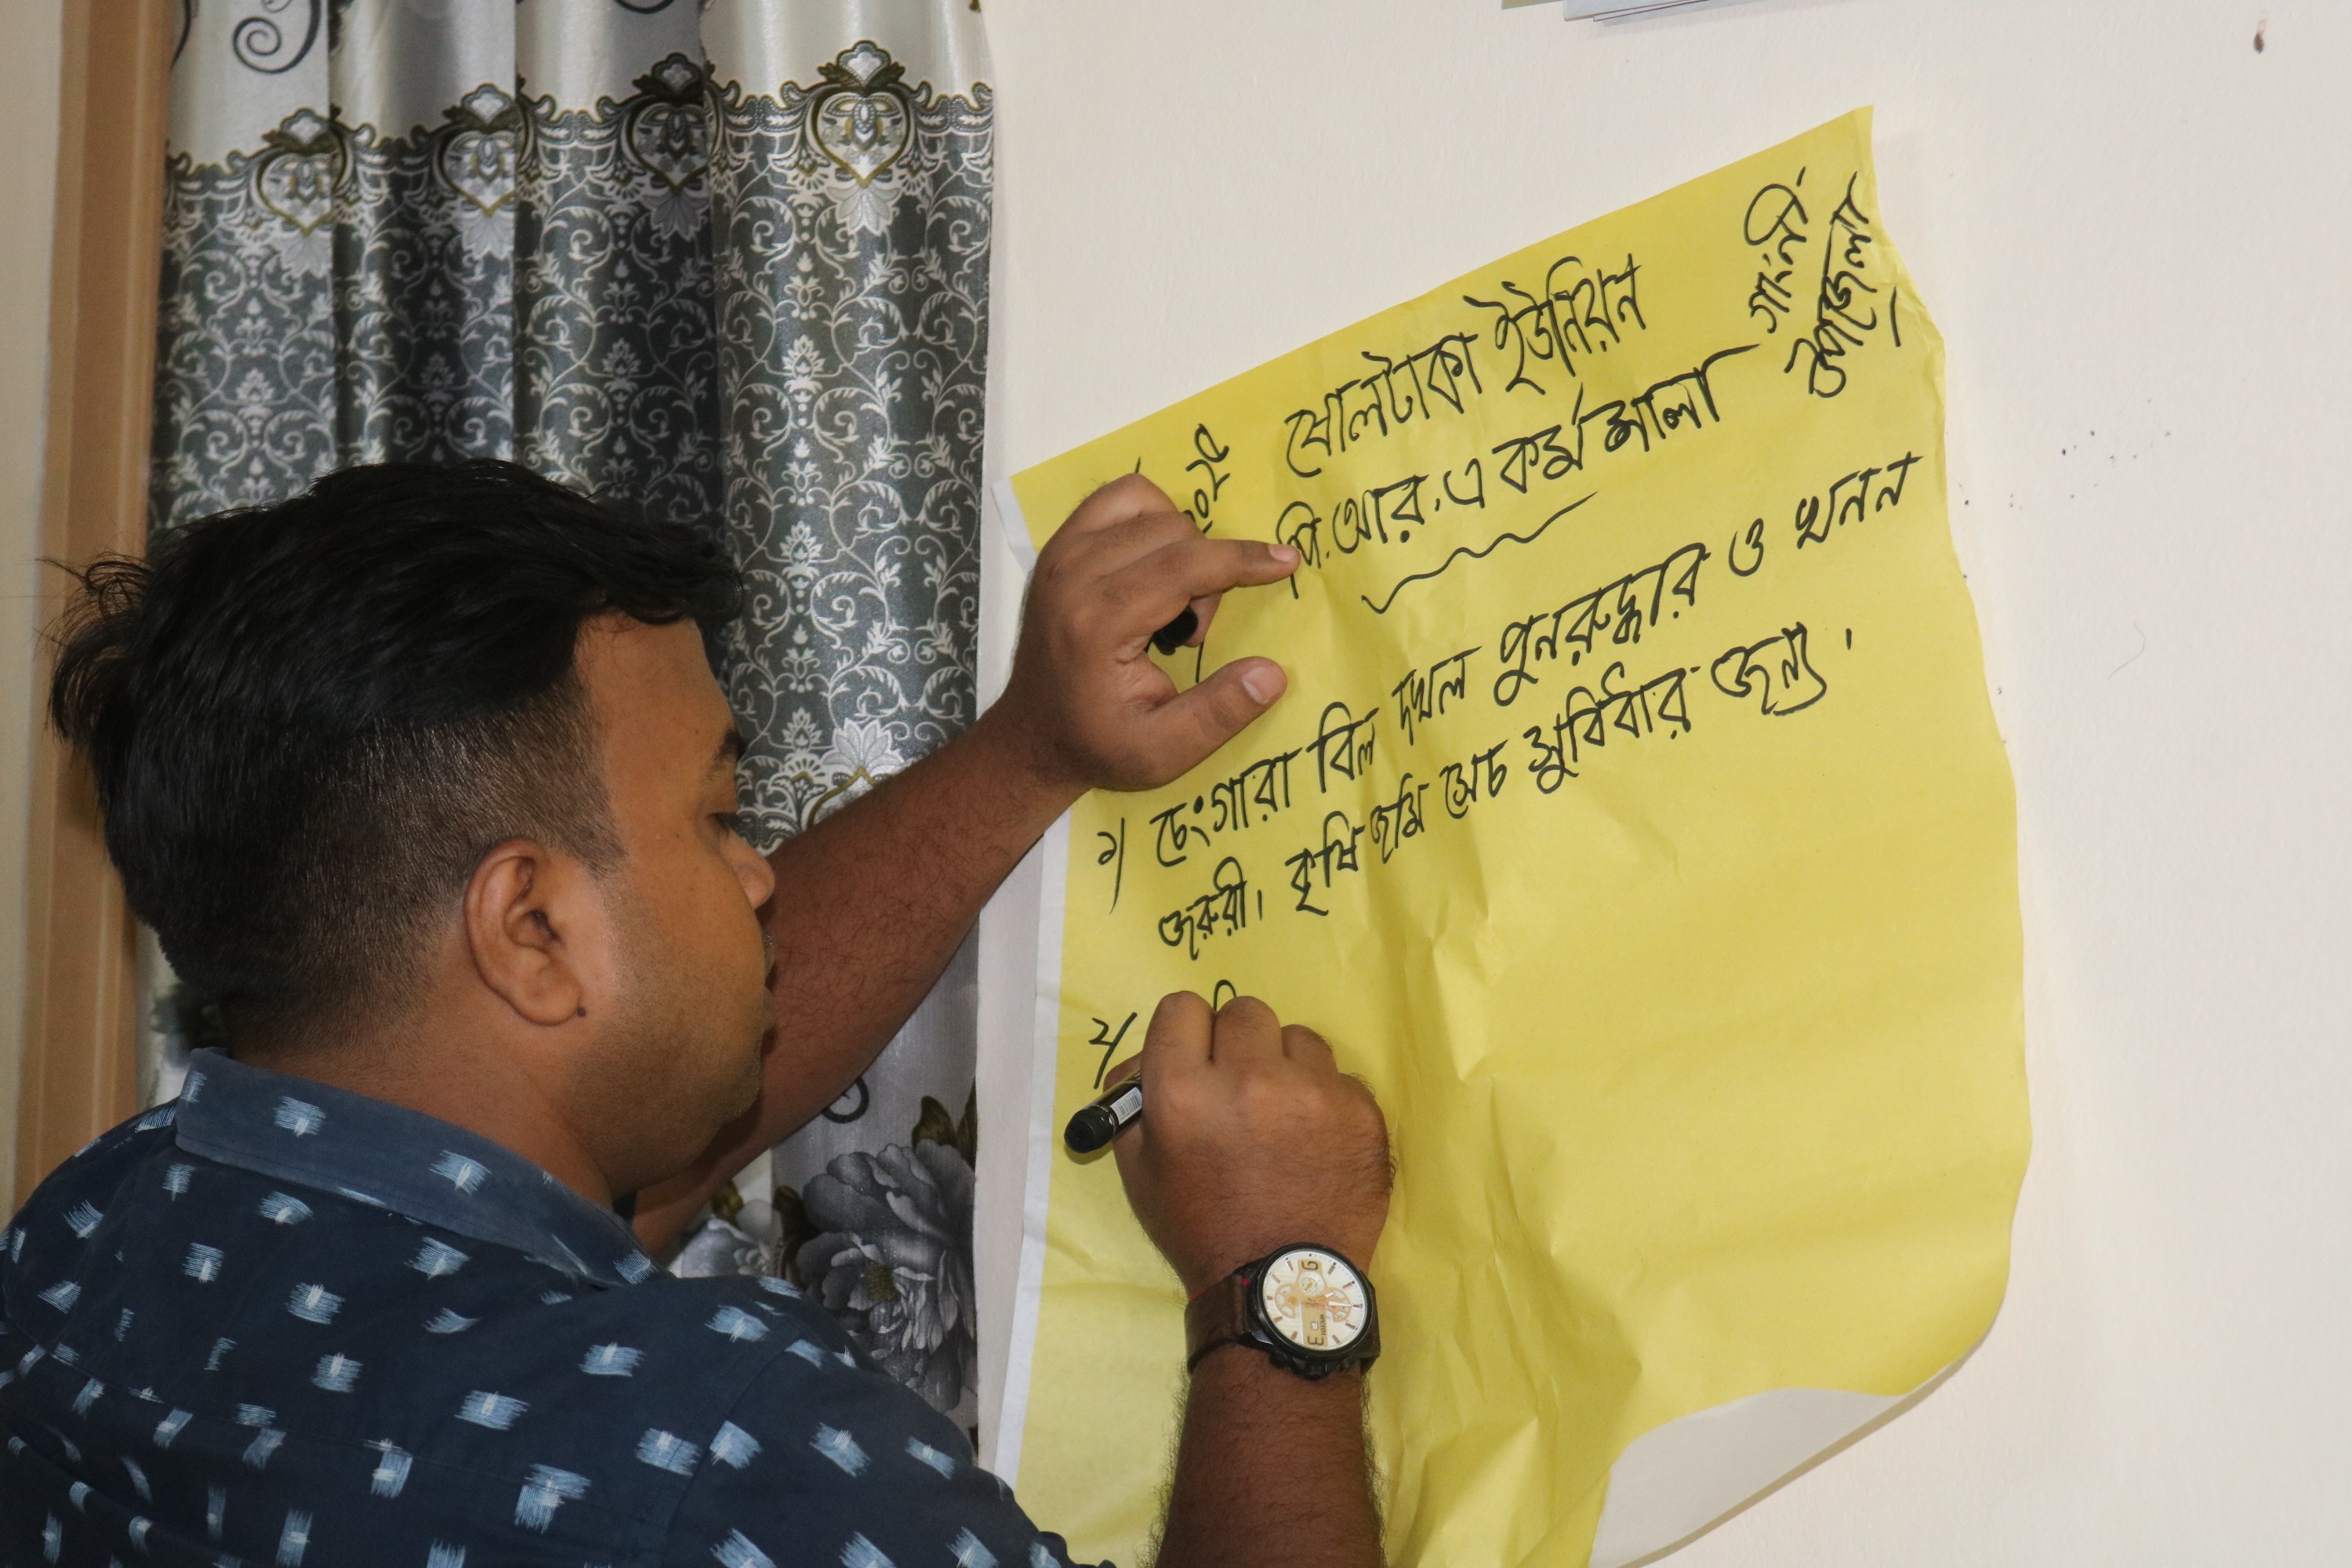 ষোলটাকা ইউনিয়ন
গাংনী
উপজেলা।
পি.আর.এ কর্মশালা
১/ চেংগারা বিল দখল পুনরুদ্ধার ও খনন
জরুরী। কৃষি জমি সেচ সুবিধার জন্য।
২/